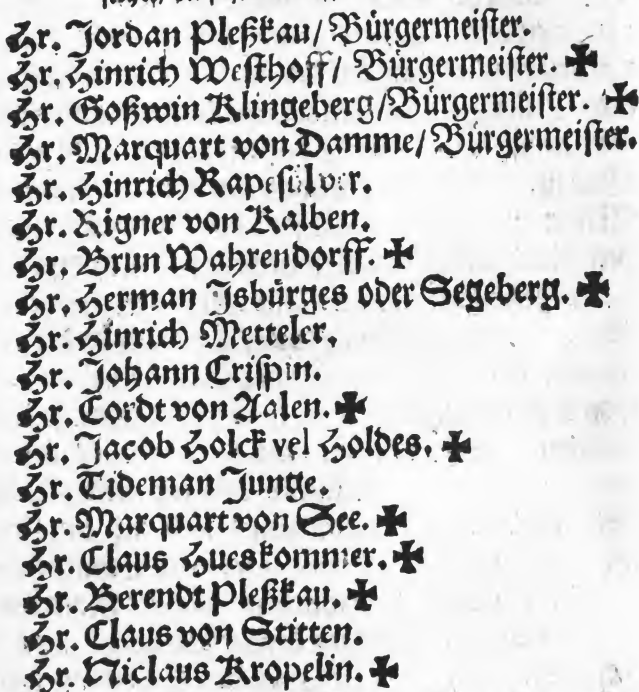 Hr. Jordan Pleßkau/ Bürgermeister.
Hr. Hinrich Westhoff/ Bürgermeister. ✠
Hr. Goßwin Klingeberg/Bürgermeister. ✠
Hr. Marquart von Damme/ Bürgermeister.
Hr. Hinrich Rapesulver.
Hr. Rigner von Kalben.
Hr. Brun Wahrendorff. ✠
Hr. Herman Isbürges oder Segeberg. ✠
Hr. Hinrich Metteler.
Hr. Johann Crispin.
Hr. Cordt von Aalen. ✠
Hr. Jacob Holck vel Holdes. ✠
Hr. Tideman Junge.
Hr. Marquart von See. ✠
Hr. Claus Hueskommer. ✠
Hr. Berendt Pleßkau. ✠
Hr. Claus von Stitten.
Hr. Niclaus Kropelin. ✠